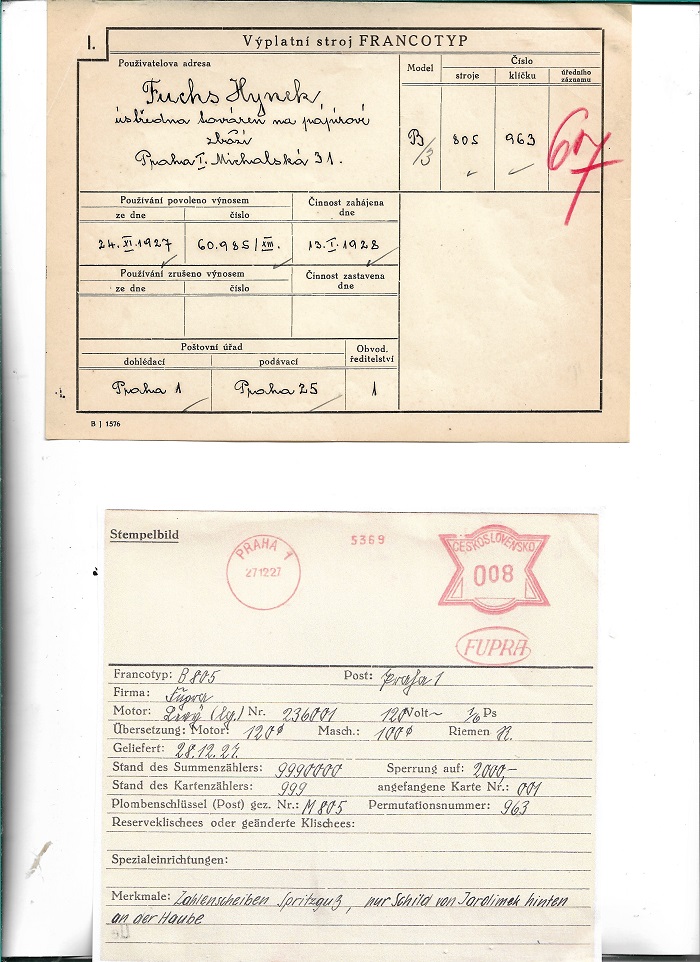 I.
Výplatní stroj FRANCOTYP
Používatelova adresa
Model
Číslo
stroje
klíčku
úředního záznamu
Fuchs Hynek
ústředna továren na papírové
zboží
Praha I. Michalská 31.
B/3
805
963
607
Používání povoleno výnosem
Činnost zahájena
dne
ze dne
číslo
24. XI. 1927
60.985/XIII.
13. I. 1928
Používání zrušeno výnosem
Činnost zastavena
dne
ze dne
číslo
Poštovní úřad
Obvod.
ředitelství
dohlédací
podávací
Praha 1
Praha 25
1
B | 1576
Stempelbild
PRAHA 1
27 12 27
5369
ČESKOSLOVENSKO
008
FUPRA
Francotyp: B 805 Post: Praha 1
Firma: Fupra
Motor: Nr. 236001 120 Volt~ 1/6 Ps
Übersetzung: Motor: 120 Masch.: 100 Riemen R.
Geliefert: 28.12.27.
Stand des Summenzählers: 9990000 Sperrung auf: 2000,-
Stand des Kartenzählers: 999 angefangene Karte Nr.: 001
Plombenschlüssel (Post) gez. Nr.: M 805 Permutationsnummer: 963
Reserveklischees oder geänderte Klischees:
Spezialeinrichtungen:
Merkmale: Zahlenscheiben Spritzguß, nur Schild von Jarolimek hinten
an der Haube